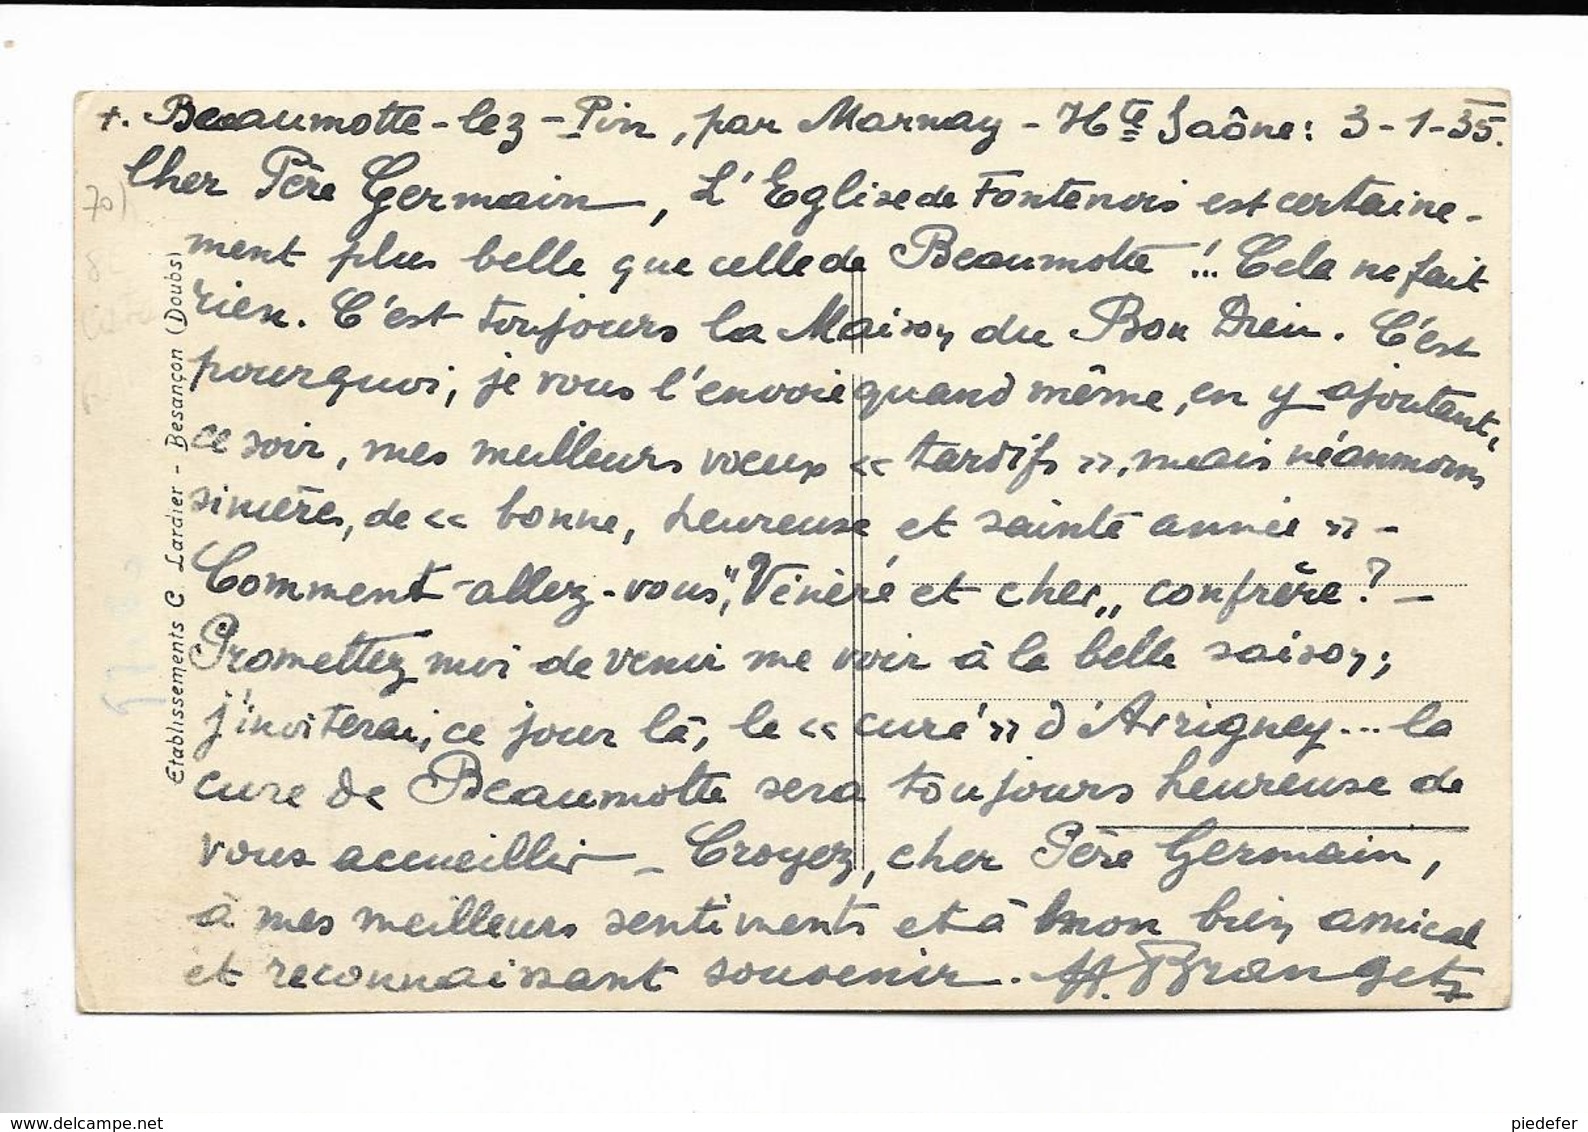 +. Beaumotte-lez-Pin, par Marnay - Hte Saône: 3-1-35.
Cher Père Germain, L'Eglise de Fontenois est certaine-
ment plus belle que celle de Beaumotte !.. Cela ne fait
rien. C'est toujours la Maison du Bon Dieu. C'est
pourquoi, je vous l'envoie quand même, en y ajoutant,
ce soir, mes meilleurs vœux « tardifs », mais néanmoins
sincères, de « bonne, heureuse et sainte année » -
Comment-allez-vous, "Vénéré et cher" confrère? -
Promettez moi de venir me voir à la belle saison;
j'inviterai, ce jour là, le « curé » d'Arrigney... la
cure de Beaumotte sera toujours heureuse de
vous accueillir - Croyez, cher Père Germain,
à mes meilleurs sentiments et à mon bien amical
et reconnaissant souvenir. H. Branget
Etablissements C. Lardier - Besançon (Doubs)
70)
www.delcampe.net
piedefer